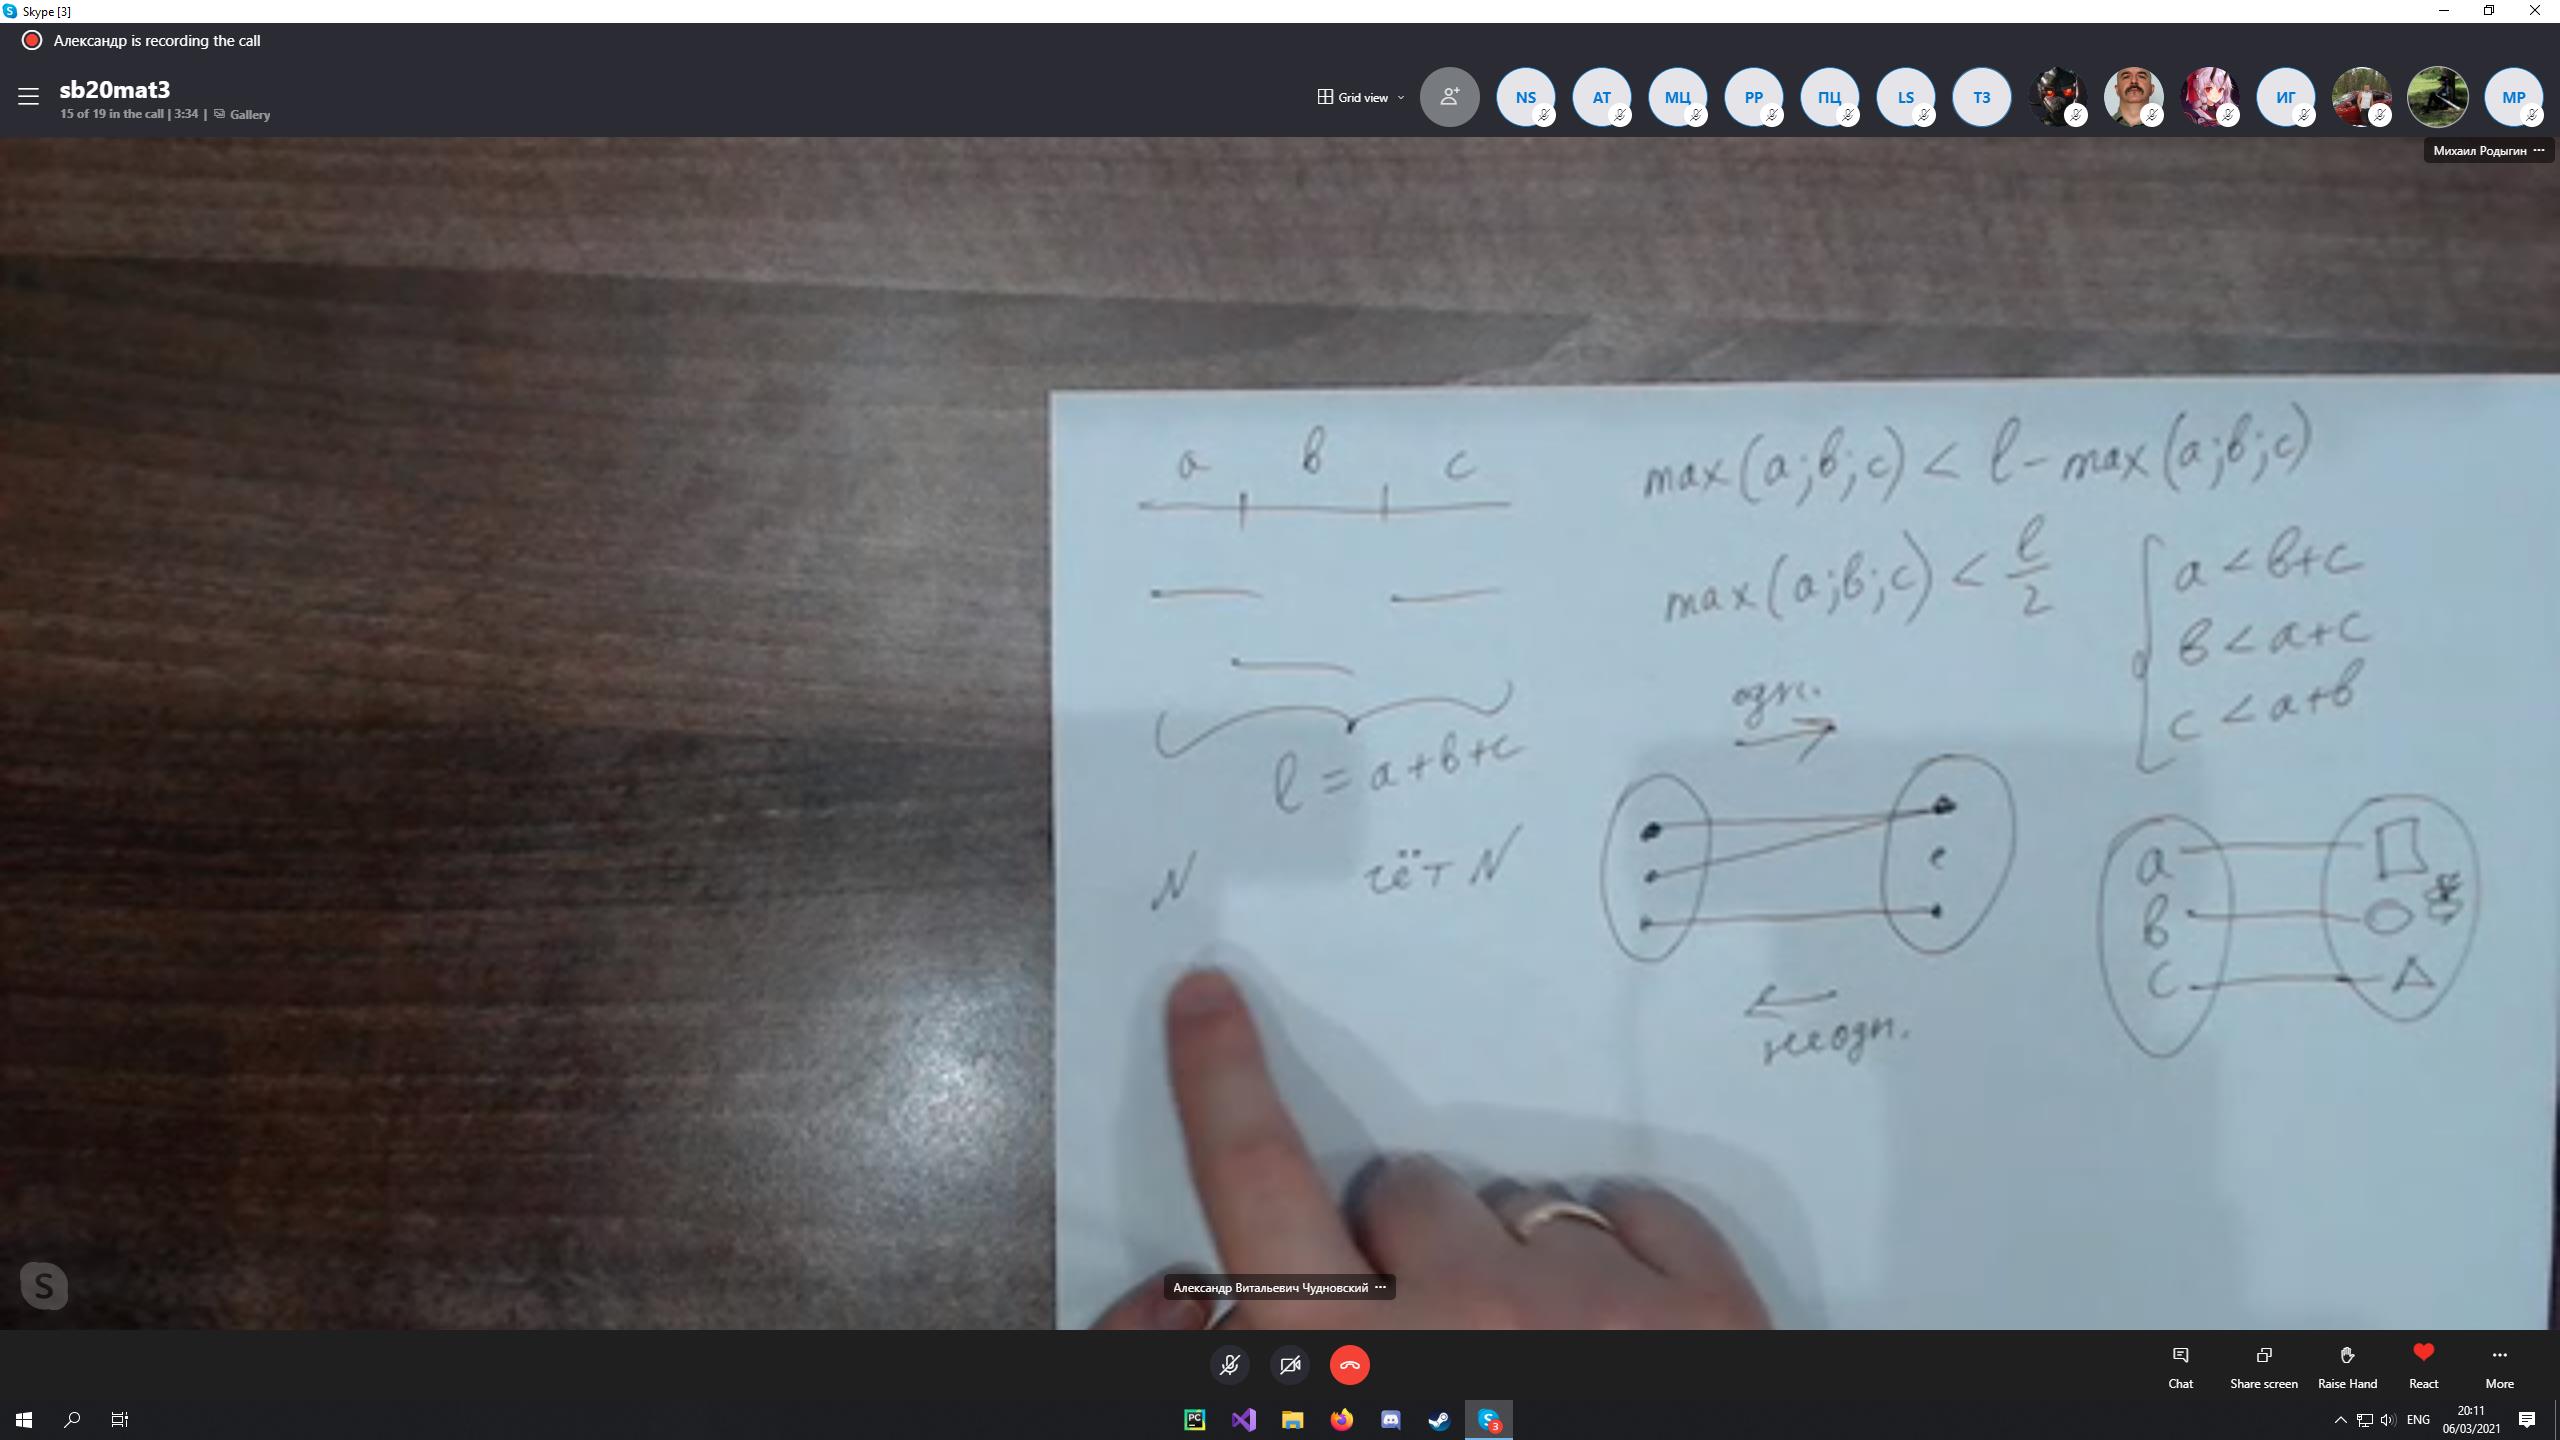 Skype [3]
Александр is recording the call
sb20mat3
15 of 19 in the call | 3:34 | Gallery
Grid view
NS
AT
МЦ
PP
ПЦ
LS
T3
ИГ
MP
Михаил Родыгин ...
a b c
max(a;b;c) < l - max(a;b;c)
max(a;b;c) < l/2
a < b+c
b < a+c
c < a+b
l = a+b+c
N чёт N
одн.
неодн.
a
b
c
Александр Витальевич Чудновский ...
S
Chat
Share screen
Raise Hand
React
More
PC
3
ENG
20:11
06/03/2021